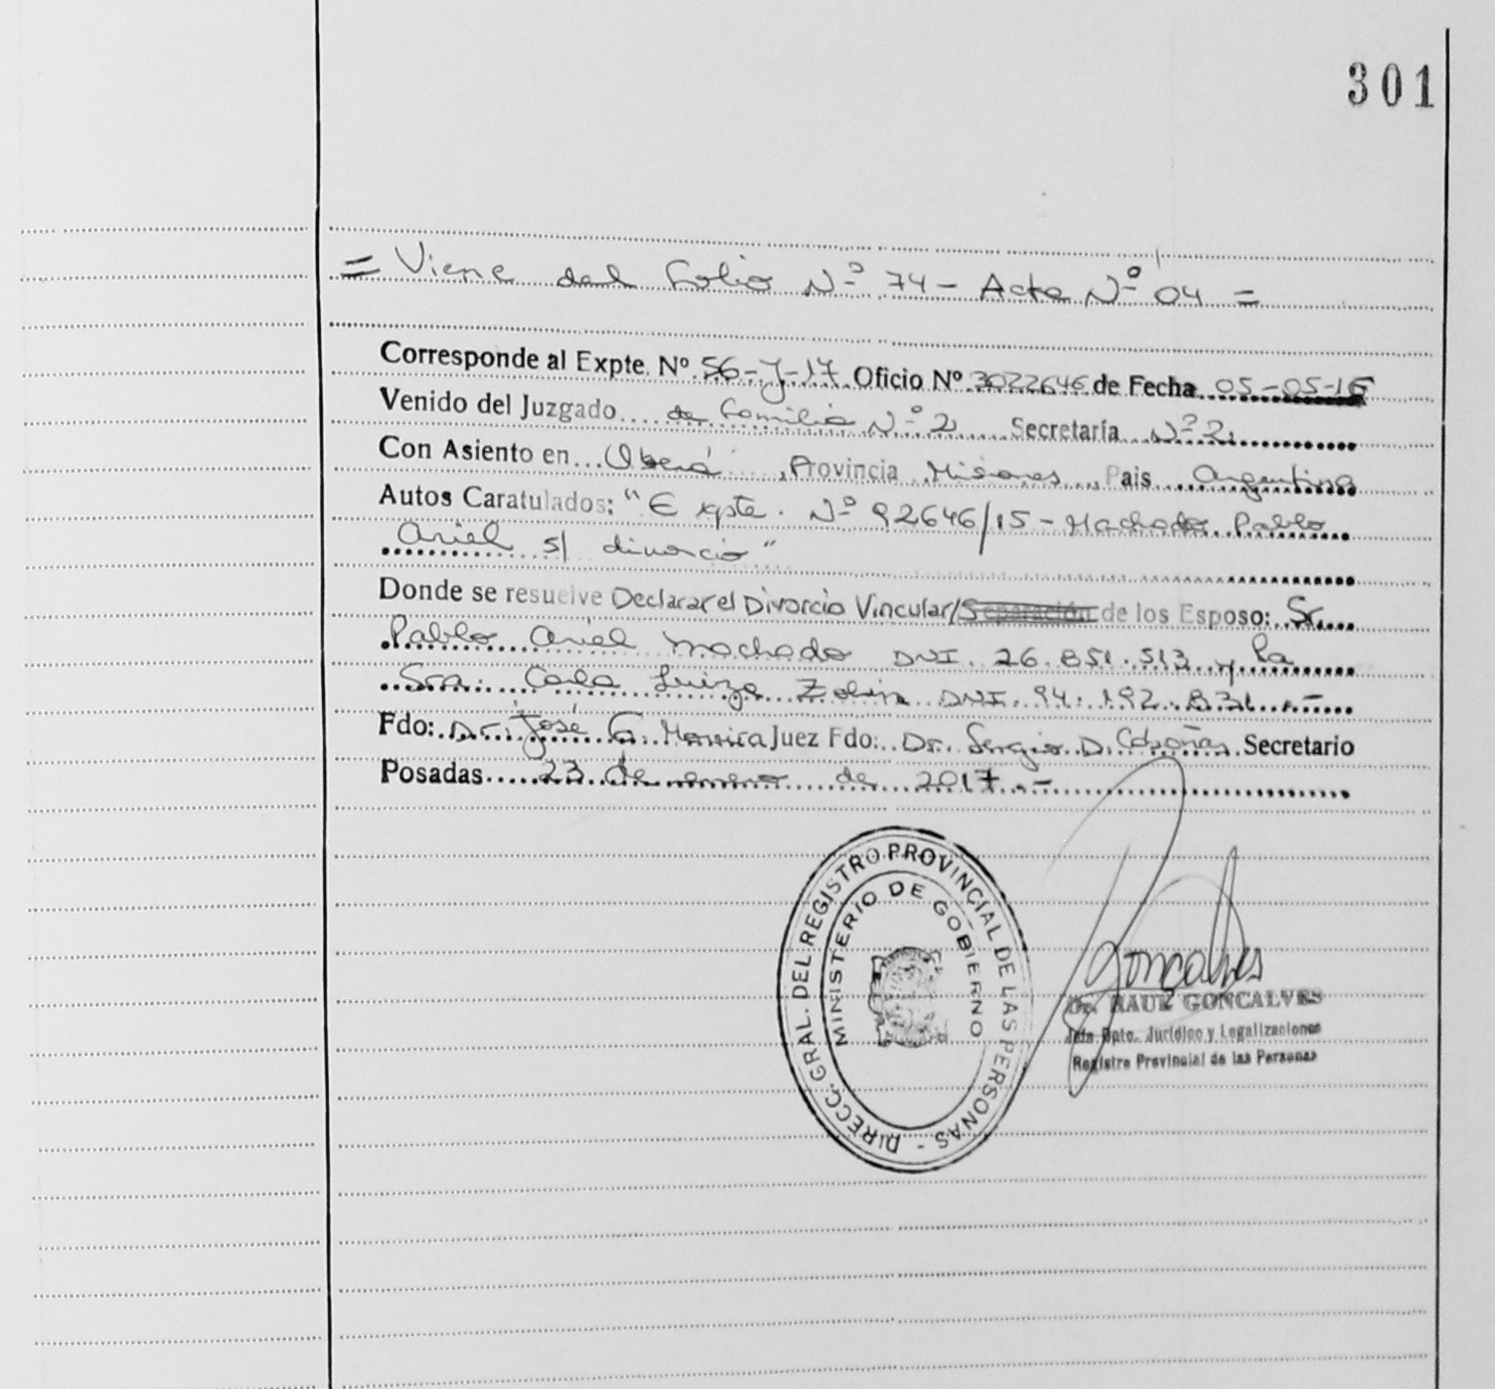 301
= Viene del Folio Nº 74 - Acta Nº 04 =
Corresponde al Expte. Nº 56-J-17 Oficio Nº 3022646 de Fecha 05-05-16
Venido del Juzgado de Familia Nº 2 Secretaría Nº 2
Con Asiento en Oberá, Provincia Misiones, Pais Argentina
Autos Caratulados: "Expte. Nº 92646/15 - Machado Pablo
Ariel s/ divorcio"
Donde se resuelve Declarar el Divorcio Vincular/Separación de los Esposo: Sr.
Pablo Ariel Machado DNI. 26.851.513 y la
Sra. Carla Luiza DNI. 94.192.831.-
Fdo: Dr. José G. Juez Fdo: Dr. Sergio D. Secretario
Posadas 23 de enero de 2017.-
DIRECC. GRAL. DEL REGISTRO PROVINCIAL DE LAS PERSONAS -
MINISTERIO DE GOBIERNO
Goncalves
Dr. RAUL GONCALVES
Jefe Dpto. Jurídico y Legalizaciones
Registro Provincial de las Personas